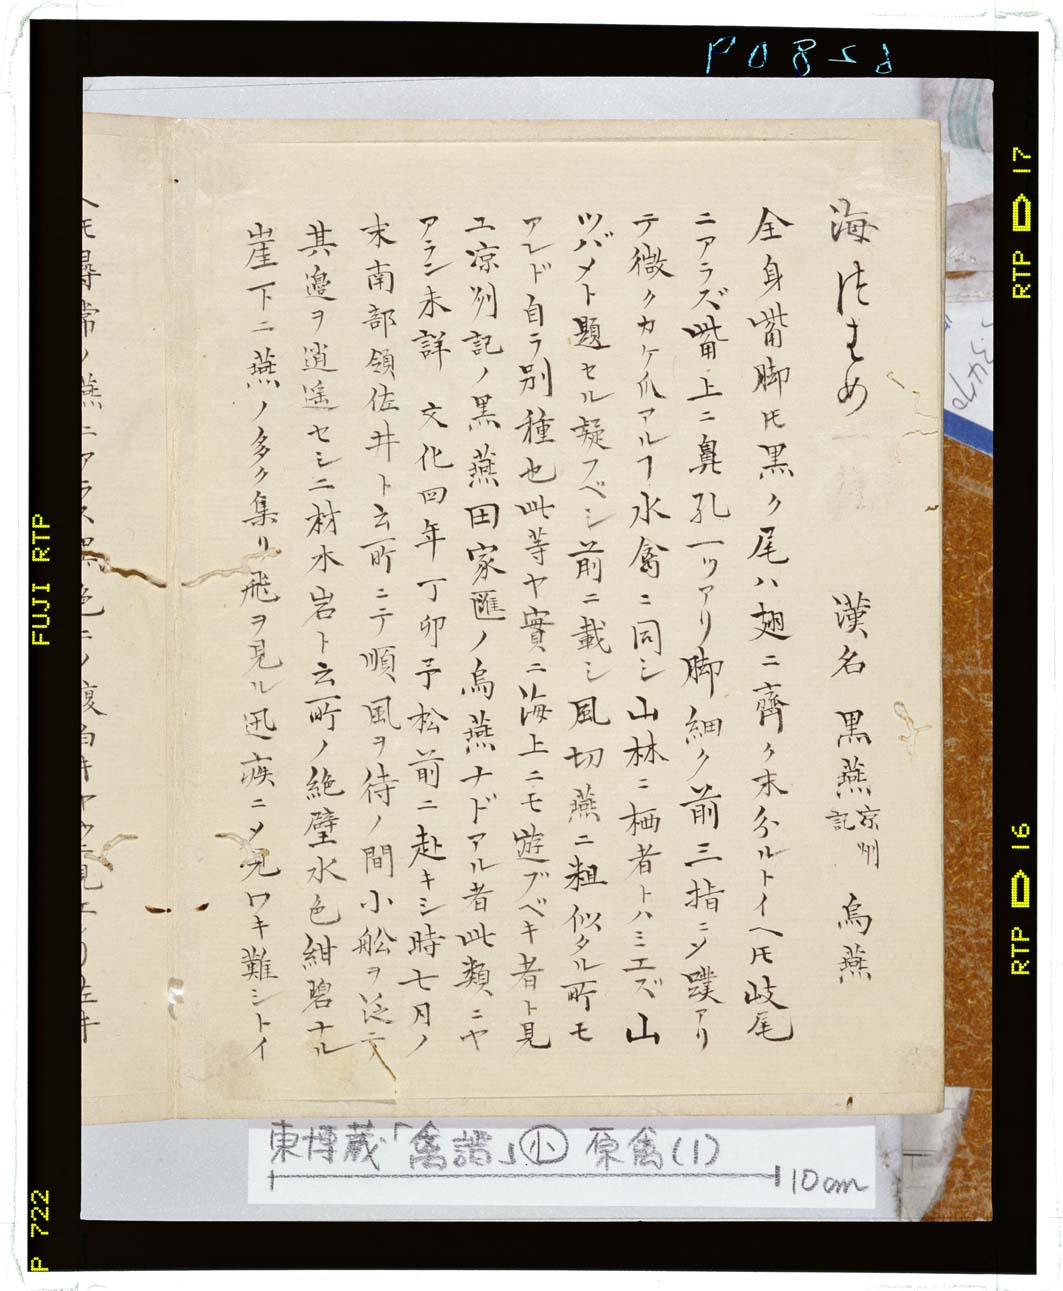 海つばめ 漢名 黒燕 涼州記 烏燕
全身嘴脚𪜈黒ク尾ハ翅ニ齊ク末分ルトイヘ𪜈岐尾
ニアラズ嘴上ニ鼻孔一ツアリ脚細ク前三指ニシ蹼アリ
テ微クカケ爪アルヿ水禽ニ同シ山林ニ栖者トハミエズ山
ツバメト題セル疑フベシ前ニ載シ風切燕ニ粗似タル所モ
アレド自ラ別種也此等ヤ實ニ海上ニモ遊ブベキ者ト見
ユ涼州記ノ黒燕田家匯ノ烏燕ナドアル者此類ニヤ
アラン未詳 文化四年丁卯予松前ニ赴キシ時七月ノ
末南部領佐井ト云所ニテ順風ヲ待ノ間小舩ヲ泛テ
其邊ヲ逍遥セシニ材木岩ト云所ノ絶壁水色紺碧ナル
崖下ニ燕ノ多ク集リ飛ヲ見ル迅疾ニメ見ワキ難シトイ
ヘ𪜈尋常ノ燕ニアラス黒色ニ
東博蔵「禽譜」小 原禽(1)
10cm
FUJI RTP
P 722
RTP 17
RTP 16